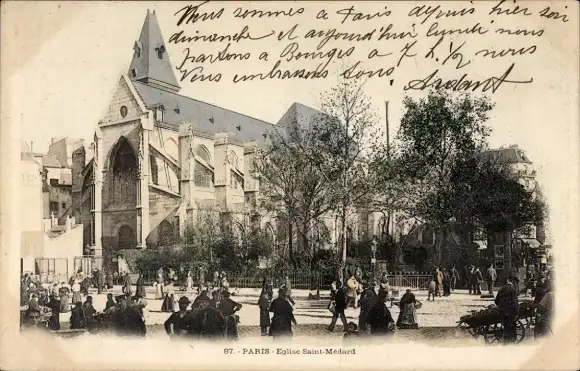 Nous sommes à Paris depuis hier soir
dimanche et aujourd'hui lundi nous
partons à Bourges à 7 h. 1/2 nous
Vous embrassons tous.
87. - PARIS - Eglise Saint-Médard